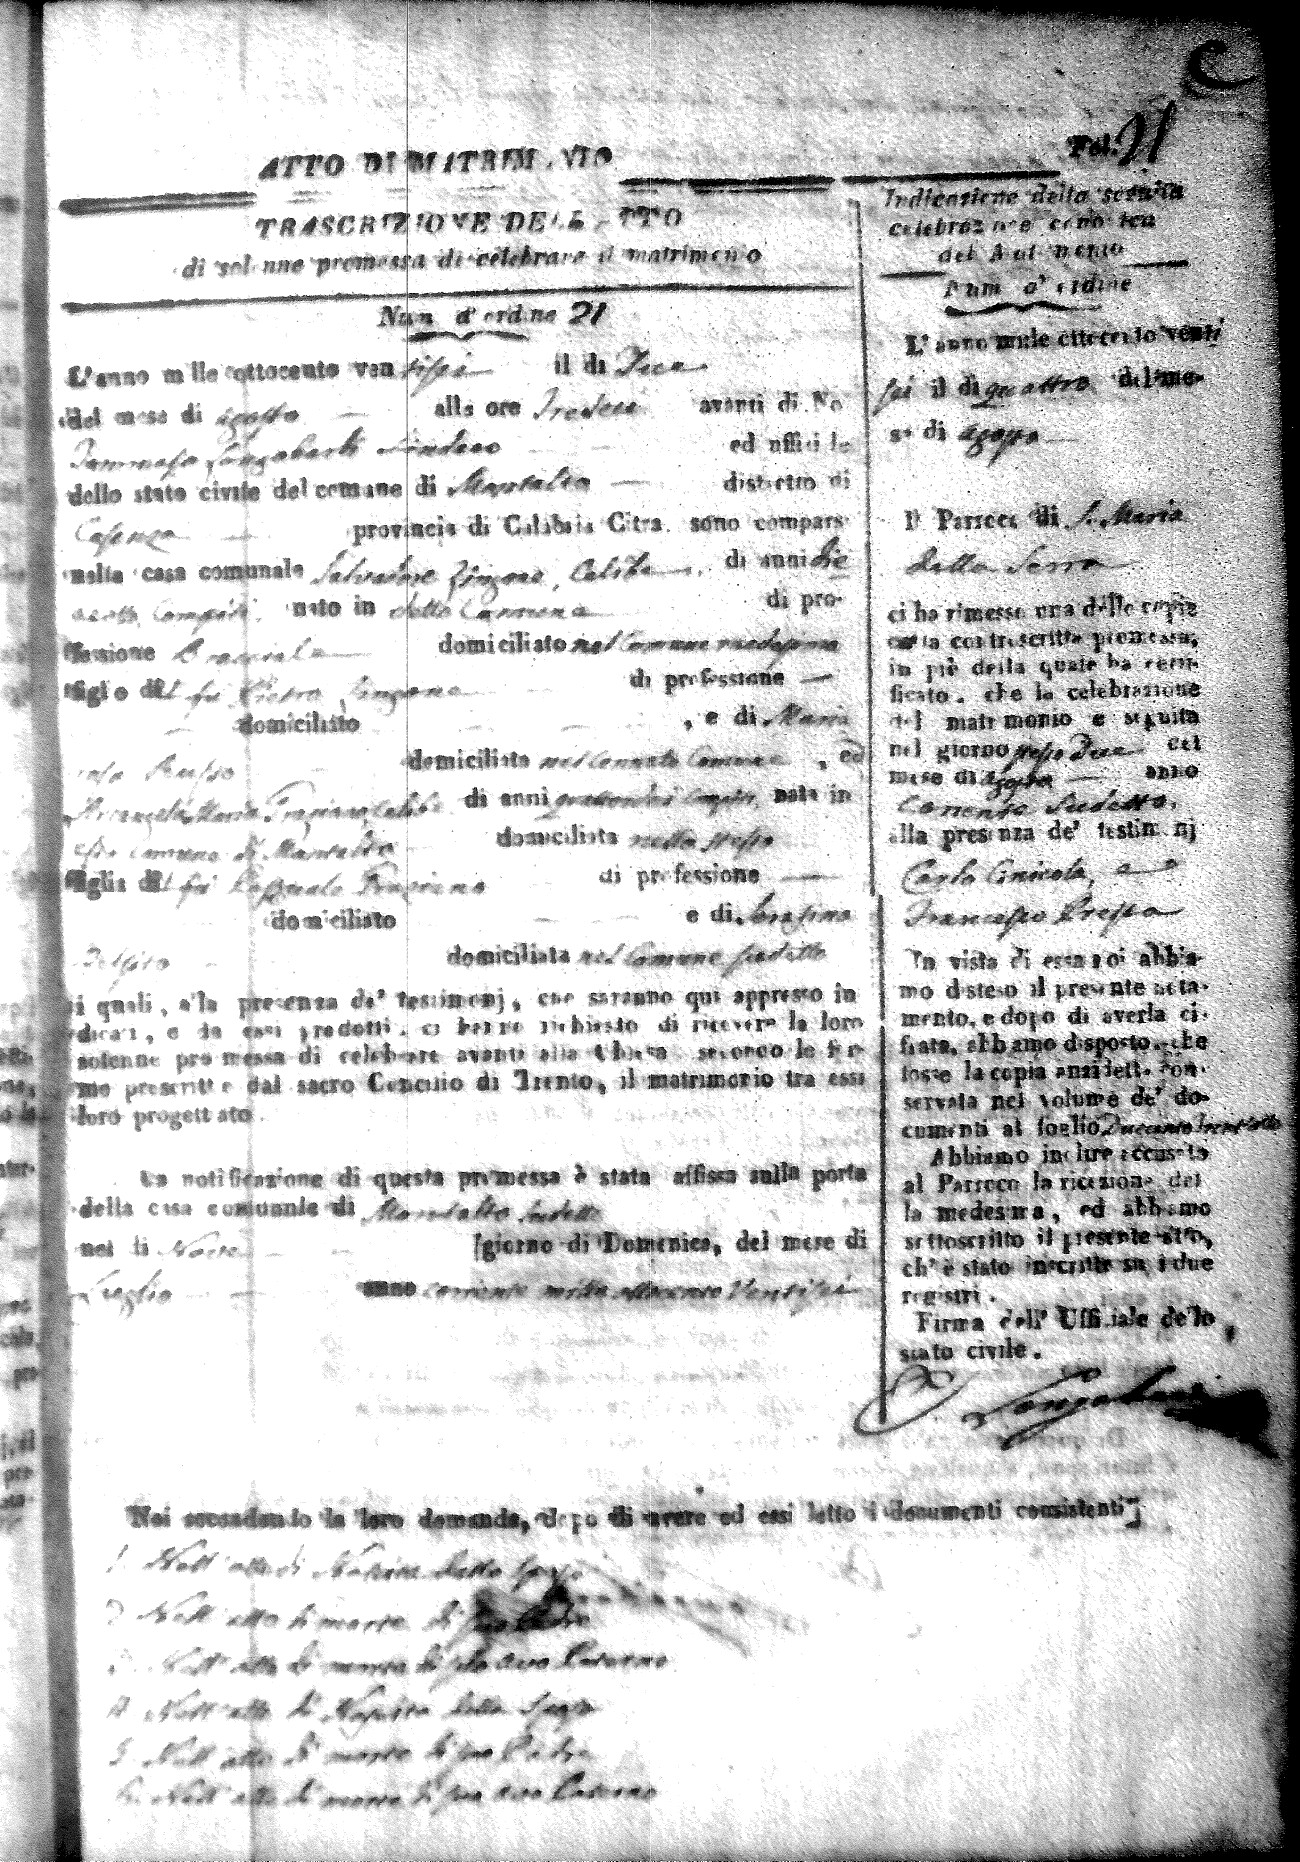 Fol. 21
ATTO DI MATRIMONIO
TRASCRIZIONE DELL' ATTO
di solenne promessa di celebrare il matrimonio
Num d'ordine 21
L'anno mille ottocento ventisei il dì Due
del mese di agosto alle ore Tredeci avanti di Noi
Tommaso Longobardi Sindaco ed uffiziale
dello stato civile del comune di Montalto distretto di
Cosenza provincia di Calabria Citra sono comparsi
nella casa comunale Salvatore Zingone, Celibe di anni die
ciotto Compiti, nato in detto Comune di pro-
fessione Bracciale domiciliato nel Comune medesimo
figlio del fu Pietro Zingone di professione —
domiciliato , e di Maria
Rosa Russo domiciliata nel Cennato Comune , ed
Arcangela Maria Graziano, Celibe di anni compiti, nata in
Comune di Montalto domiciliata nello stesso
figlia del fu Pasquale Graziano di professione —
domiciliato e di Serafina
domiciliata nel Comune sudetto
i quali, alla presenza de' testimonj, che saranno qui appresso in
dicati, e da essi prodotti, ci hanno richiesto di ricevere la loro
solenne promessa di celebrare avanti alla Chiesa secondo le for
me prescritte dal sacro Concilio di Trento, il matrimonio tra essi
loro progettato.
La notificazione di questa promessa è stata affissa sulla porta
della casa comunale di Montalto sudetto
nel dì Nove giorno di Domenica, del mese di
Luglio anno corrente mille ottocento Ventisei
Indicazione della seguita
celebrazione canonica
del Matrimonio
Num d'ordine
L'anno mille ottocento venti
sei il dì quattro del me-
se di agosto
Il Parroco di S. Maria
della Serra
ci ha rimesso una delle copie
della controscritta promessa,
in piè della quale ha certi-
ficato, che la celebrazione
del matrimonio è seguita
nel giorno stesso Due del
mese di agosto anno
corrente sudetto,
alla presenza de' testimonj
Carlo Cnicola, e
Francesco Presta
In vista di essa noi abbia-
mo disteso il presente nota-
mento, e dopo di averla ci-
frata, abbiamo disposto, che
fosse la copia anzidetta con-
servata nel volume de' do-
cumenti al foglio Duecento
Abbiamo inoltre accusato
al Parroco la ricezione del
la medesima, ed abbiamo
sottoscritto il presente atto,
ch'è stato inscritto su i due
registri.
Firma dell' Uffiziale dello
stato civile.
Longobardi
Noi secondando la loro domanda, dopo di avere ad essi letto i documenti consistenti;
1. Nell'atto di Nascita dello Sposo
2. Nell'atto di morte di suo Padre
3. Nell'atto di morte di suo avo Paterno
4. Nell'atto di Nascita della Sposa
5. Nell'atto di morte di suo Padre
6. Nell'atto di morte di suo avo Paterno